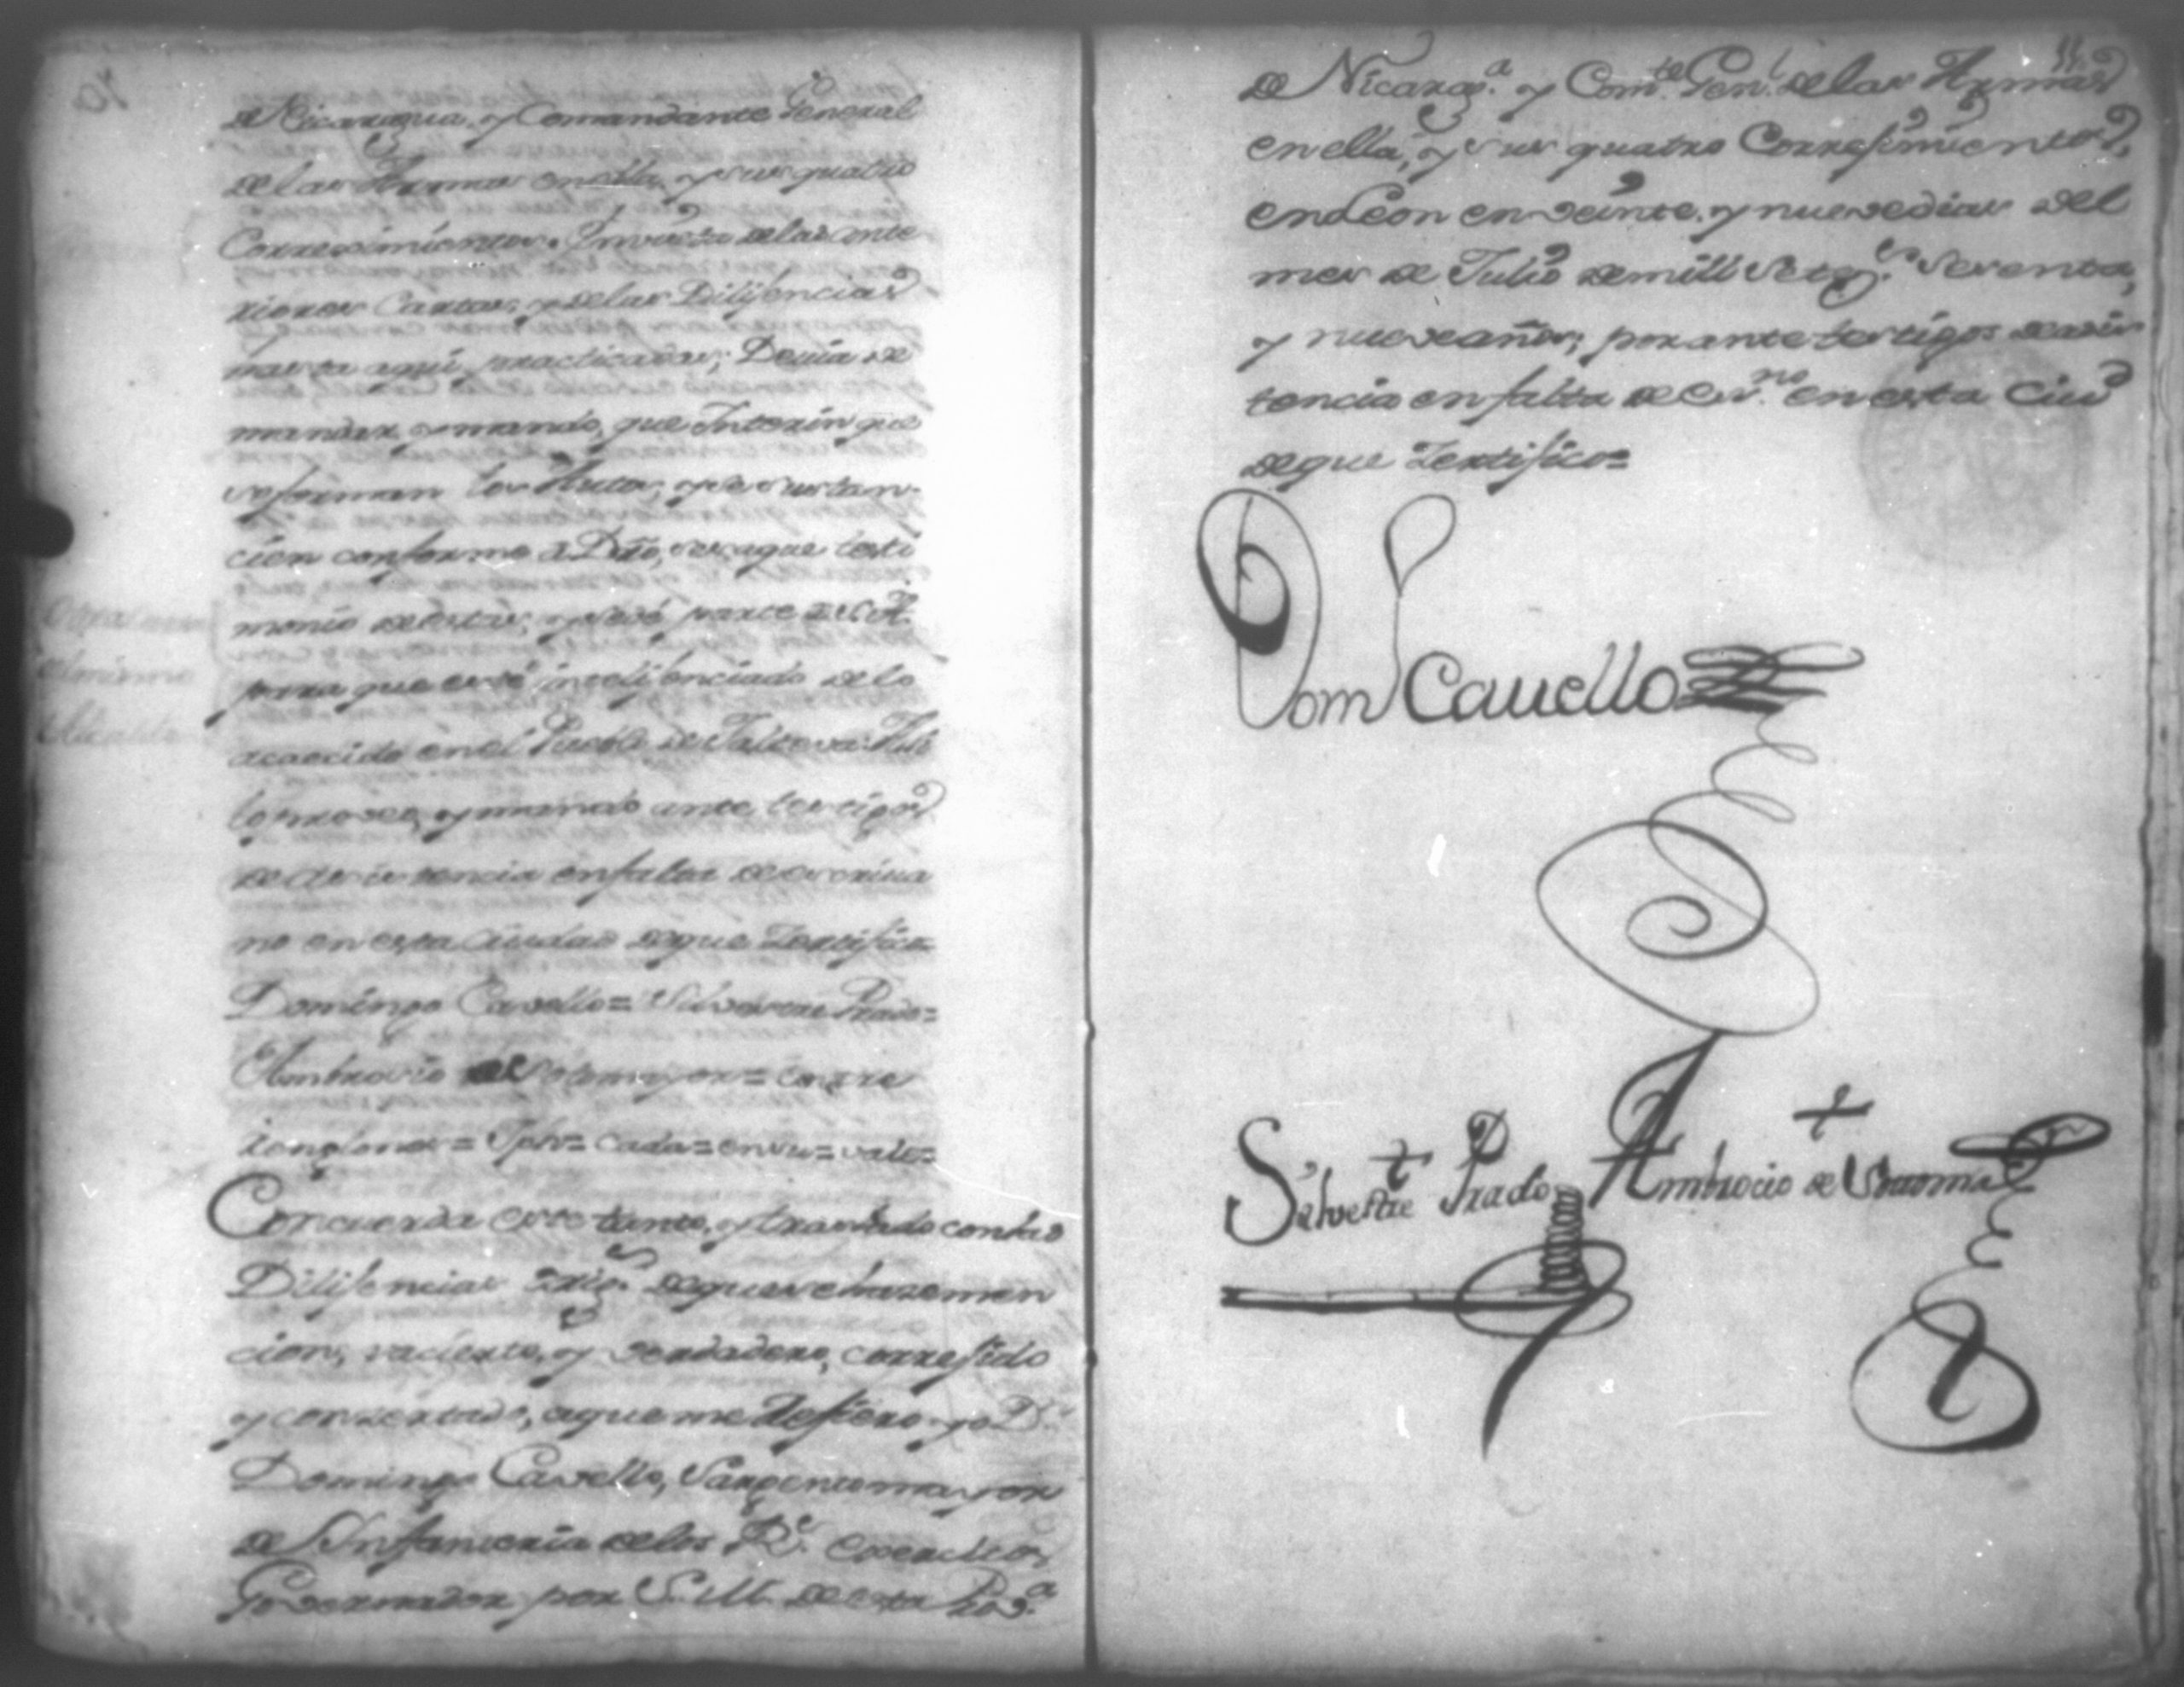 de Nicaragua, y Comandante General
de las Armas en ella, y sus quatro
Corregimientos. In vista de las ante
riores Cartas, y de las Dilijencias
hasta aqui practicadas; Devia de
mandar, y mando, que Interin que
se forman los Autos, y se sustan-
cien conforme a Dro, se saque testi
monio de estas, y se dé parte
para que esté intelijenciado de lo
acaecido en el Pueblo de Jalteva: Assi
lo proveo, y mando ante testigos
de asistencia en falta de escriva
no en esta Ciudad de que Zertifico=
Domingo Cavello= Silvestre Prado=
Ambrosio de Sotomayor= entre
renglones= cada= en su= vale=
Concuerda este tanto, y traslado con las
Dilijencias de que se haze men
cion, va cierto, y verdadero, correjido
y conzertado, a que me Refiero yo Dn.
Domingo Cavello, Sargento mayor
de Infanteria de los Rs. exercitos,
Governador por S. M. de esta Prova.
de Nicaraga. y Comte. Genl. de las Armas
en ella, y sus quatro Correjimientos,
en Leon en veinte, y nueve dias del
mes de Julio de mill Setezs. Sesenta,
y nueve años; por ante testigos de asis
tencia en falta de Esno. en esta Ciud
de que Zertifico=
Domo Cauello
Silvestre Prado Ambrocio de
11
Otra
del mismo
Alcalde